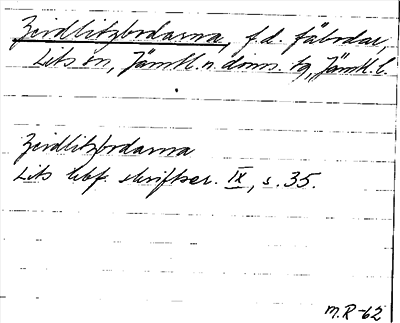 Zeidlitzbodarna, f.d. fäbodar,
Lits sn, Jämtl. n. doms. tg, Jämtl. l.
Zeidlitzbodarna
Lits hbf. skriftser. IX, s. 35.
M.R-62